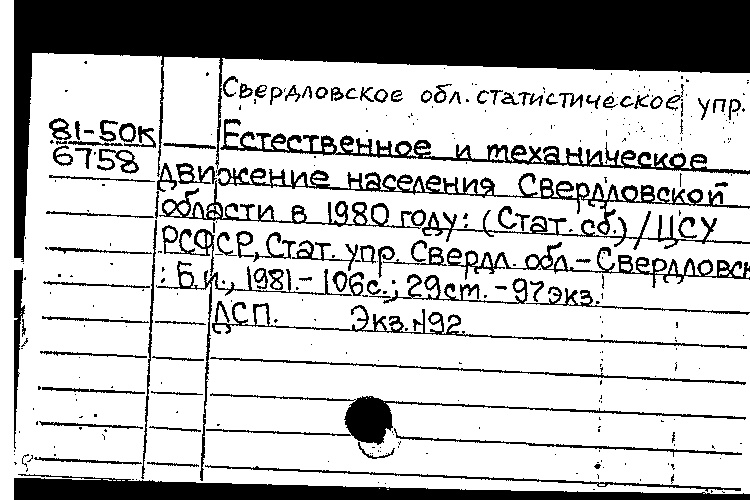 Свердловское обл. статистическое упр.
81-50к
6758
Естественное и механическое
движение населения Свердловской
области в 1980 году: (Стат. сб.) / ЦСУ
РСФСР, Стат. упр. Свердл. обл.-Свердловск
: Б.и., 1981.- 106с.; 29см. -97экз.
ДСП. Экз.№92.